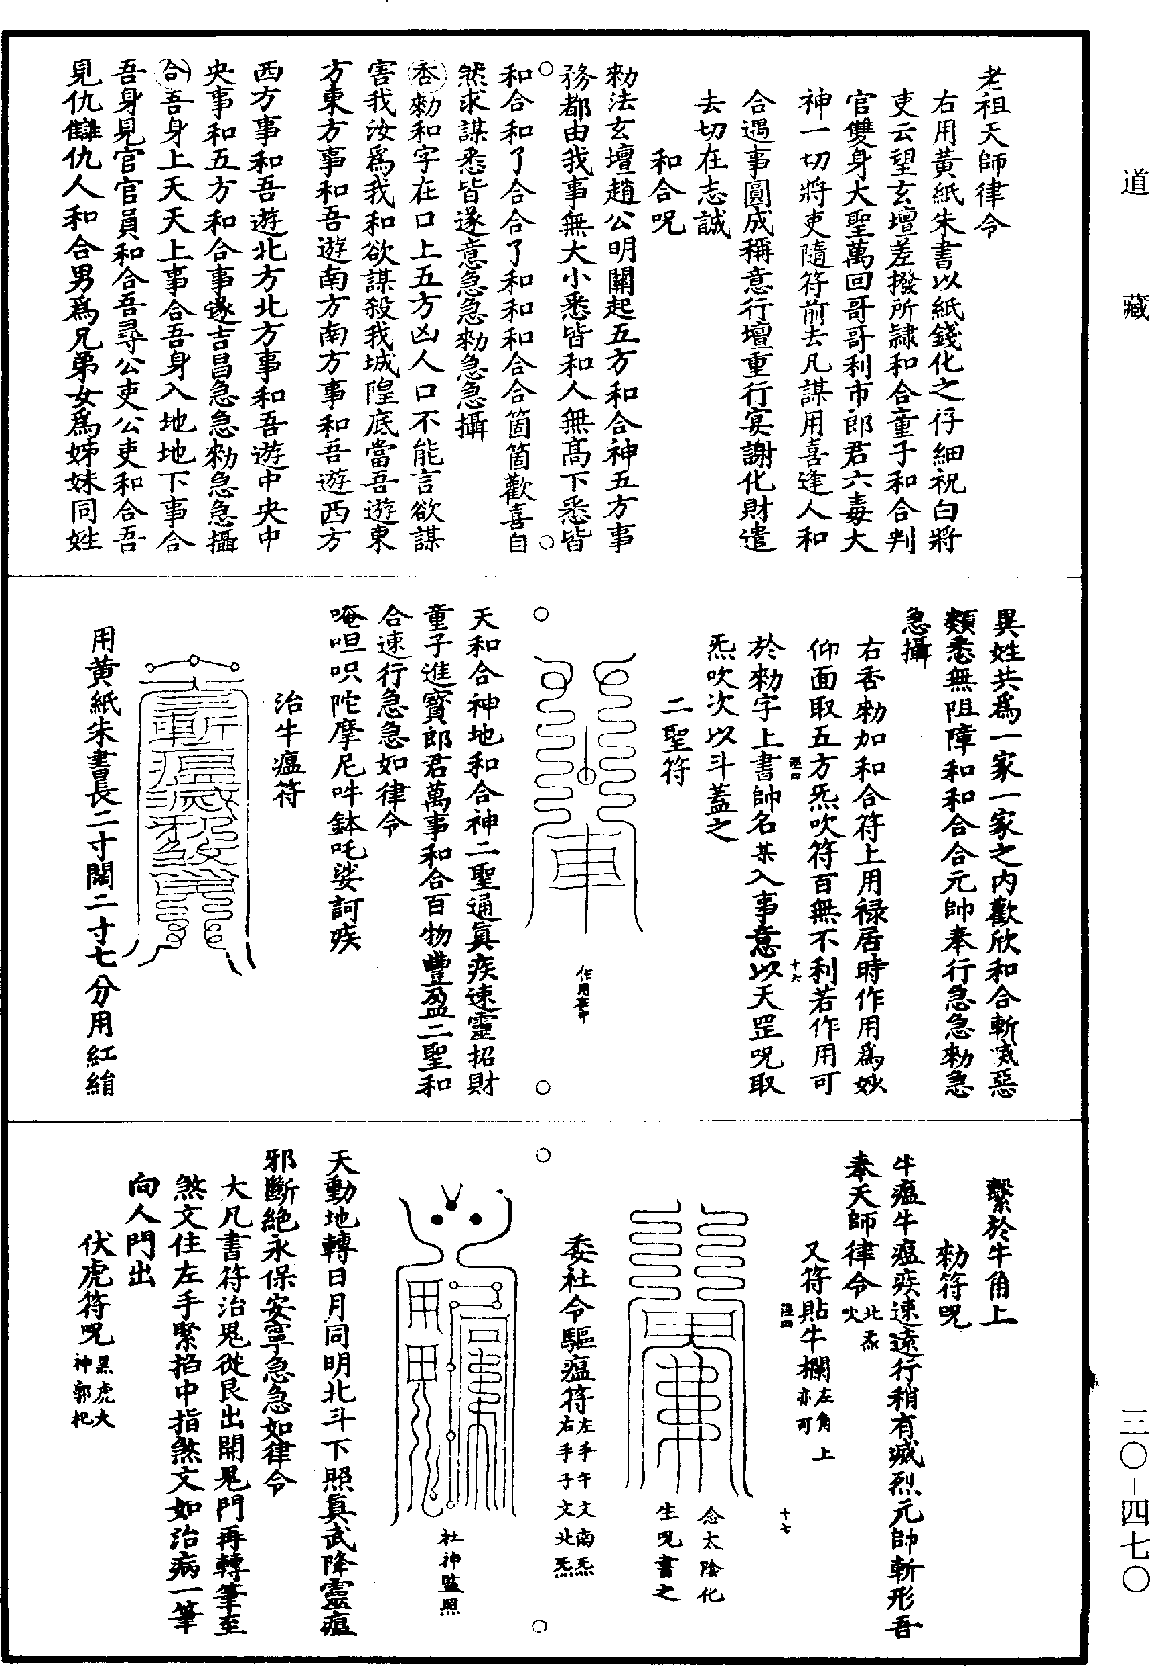 道藏
老祖天師律令
右用黃紙朱書以紙錢化之仔細祝白將
吏云望玄壇差撥所隸和合童子和合判
官雙身大聖萬回哥哥利市郎君六毒大
神一切將吏隨符前去凡謀用喜逢人和
合遇事圓成稱意行壇重行冥謝化財遣
去切在志誠
和合呪
勑法玄壇趙公明關起五方和合神五方事
務都由我事無大小悉皆和人無高下悉皆
和合和了合合了和和和合合箇箇歡喜自
然求謀悉皆遂意急急勑急急攝
㕿勑和字在口上五方凶人口不能言欲謀
害我汝爲我和欲謀殺我城隍底當吾遊東
方東方事和吾遊南方南方事和吾遊西方
西方事和吾遊北方北方事和吾遊中央中
央事和五方和合事遂吉昌急急勑急急攝
合吾身上天天上事合吾身入地地下事合
吾身見官官員和合吾尋公吏公吏和合吾
見仇讎仇人和合男爲兄弟女爲姊妹同姓
異姓共爲一家一家之內歡欣和合斬滅惡
類悉無阻障和和合合元帥奉行急急勑急
急攝
右㕿勑加和合符上用祿居時作用爲妙
仰面取五方炁吹符百無不利若作用可
於勑字上書帥名某入事意以天罡呪取
炁吹次以斗蓋之
二聖符
作用在印
天和合神地和合神二聖通眞疾速靈招財
童子進寳郎君萬事和合百物豐盈二聖和
合速行急急如律令
唵呾呮陀摩尼吽鉢吒娑訶疾
治牛瘟符
用黃紙朱書長二寸闊二寸七分用紅絹
繫於牛角上
勑符呪
牛瘟牛瘟疾速遠行稍有滅烈元帥斬形吾
奉天師律令北炁吹
又符貼牛欄左角上亦可
念太陰化
生呪書之
委社令驅瘟符左手午文南炁右手子文北炁
社神監照
天動地轉日月同明北斗下照眞武降靈瘟
邪斷絕永保安寧急急如律令
大凡書符治鬼從艮出開鬼門再轉筆至
煞文住左手緊掐中指煞文如治病一筆
向人門出
伏虎符呪黑虎大神郭杞
三〇-四七〇